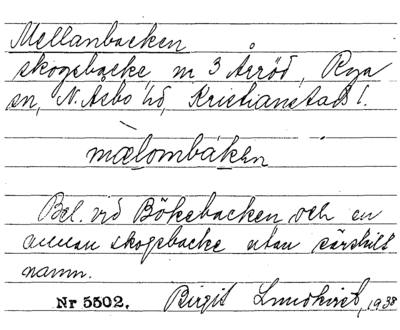 Mellanbacken
skogsbacke, n 3 Årröd, Rya
sn, N. Åsbo hd, Kristianstads l.
mælombáken
Bel. vid Bökebacken och en
annan skogsbacke utan särskilt
namn.
Nr 5502. Birgit Lundkvist, 1938